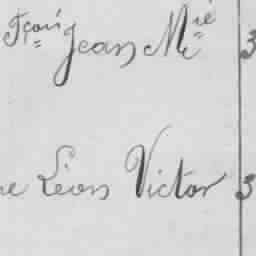 Fçois Jean Mie 3
ne Léon Victor 3